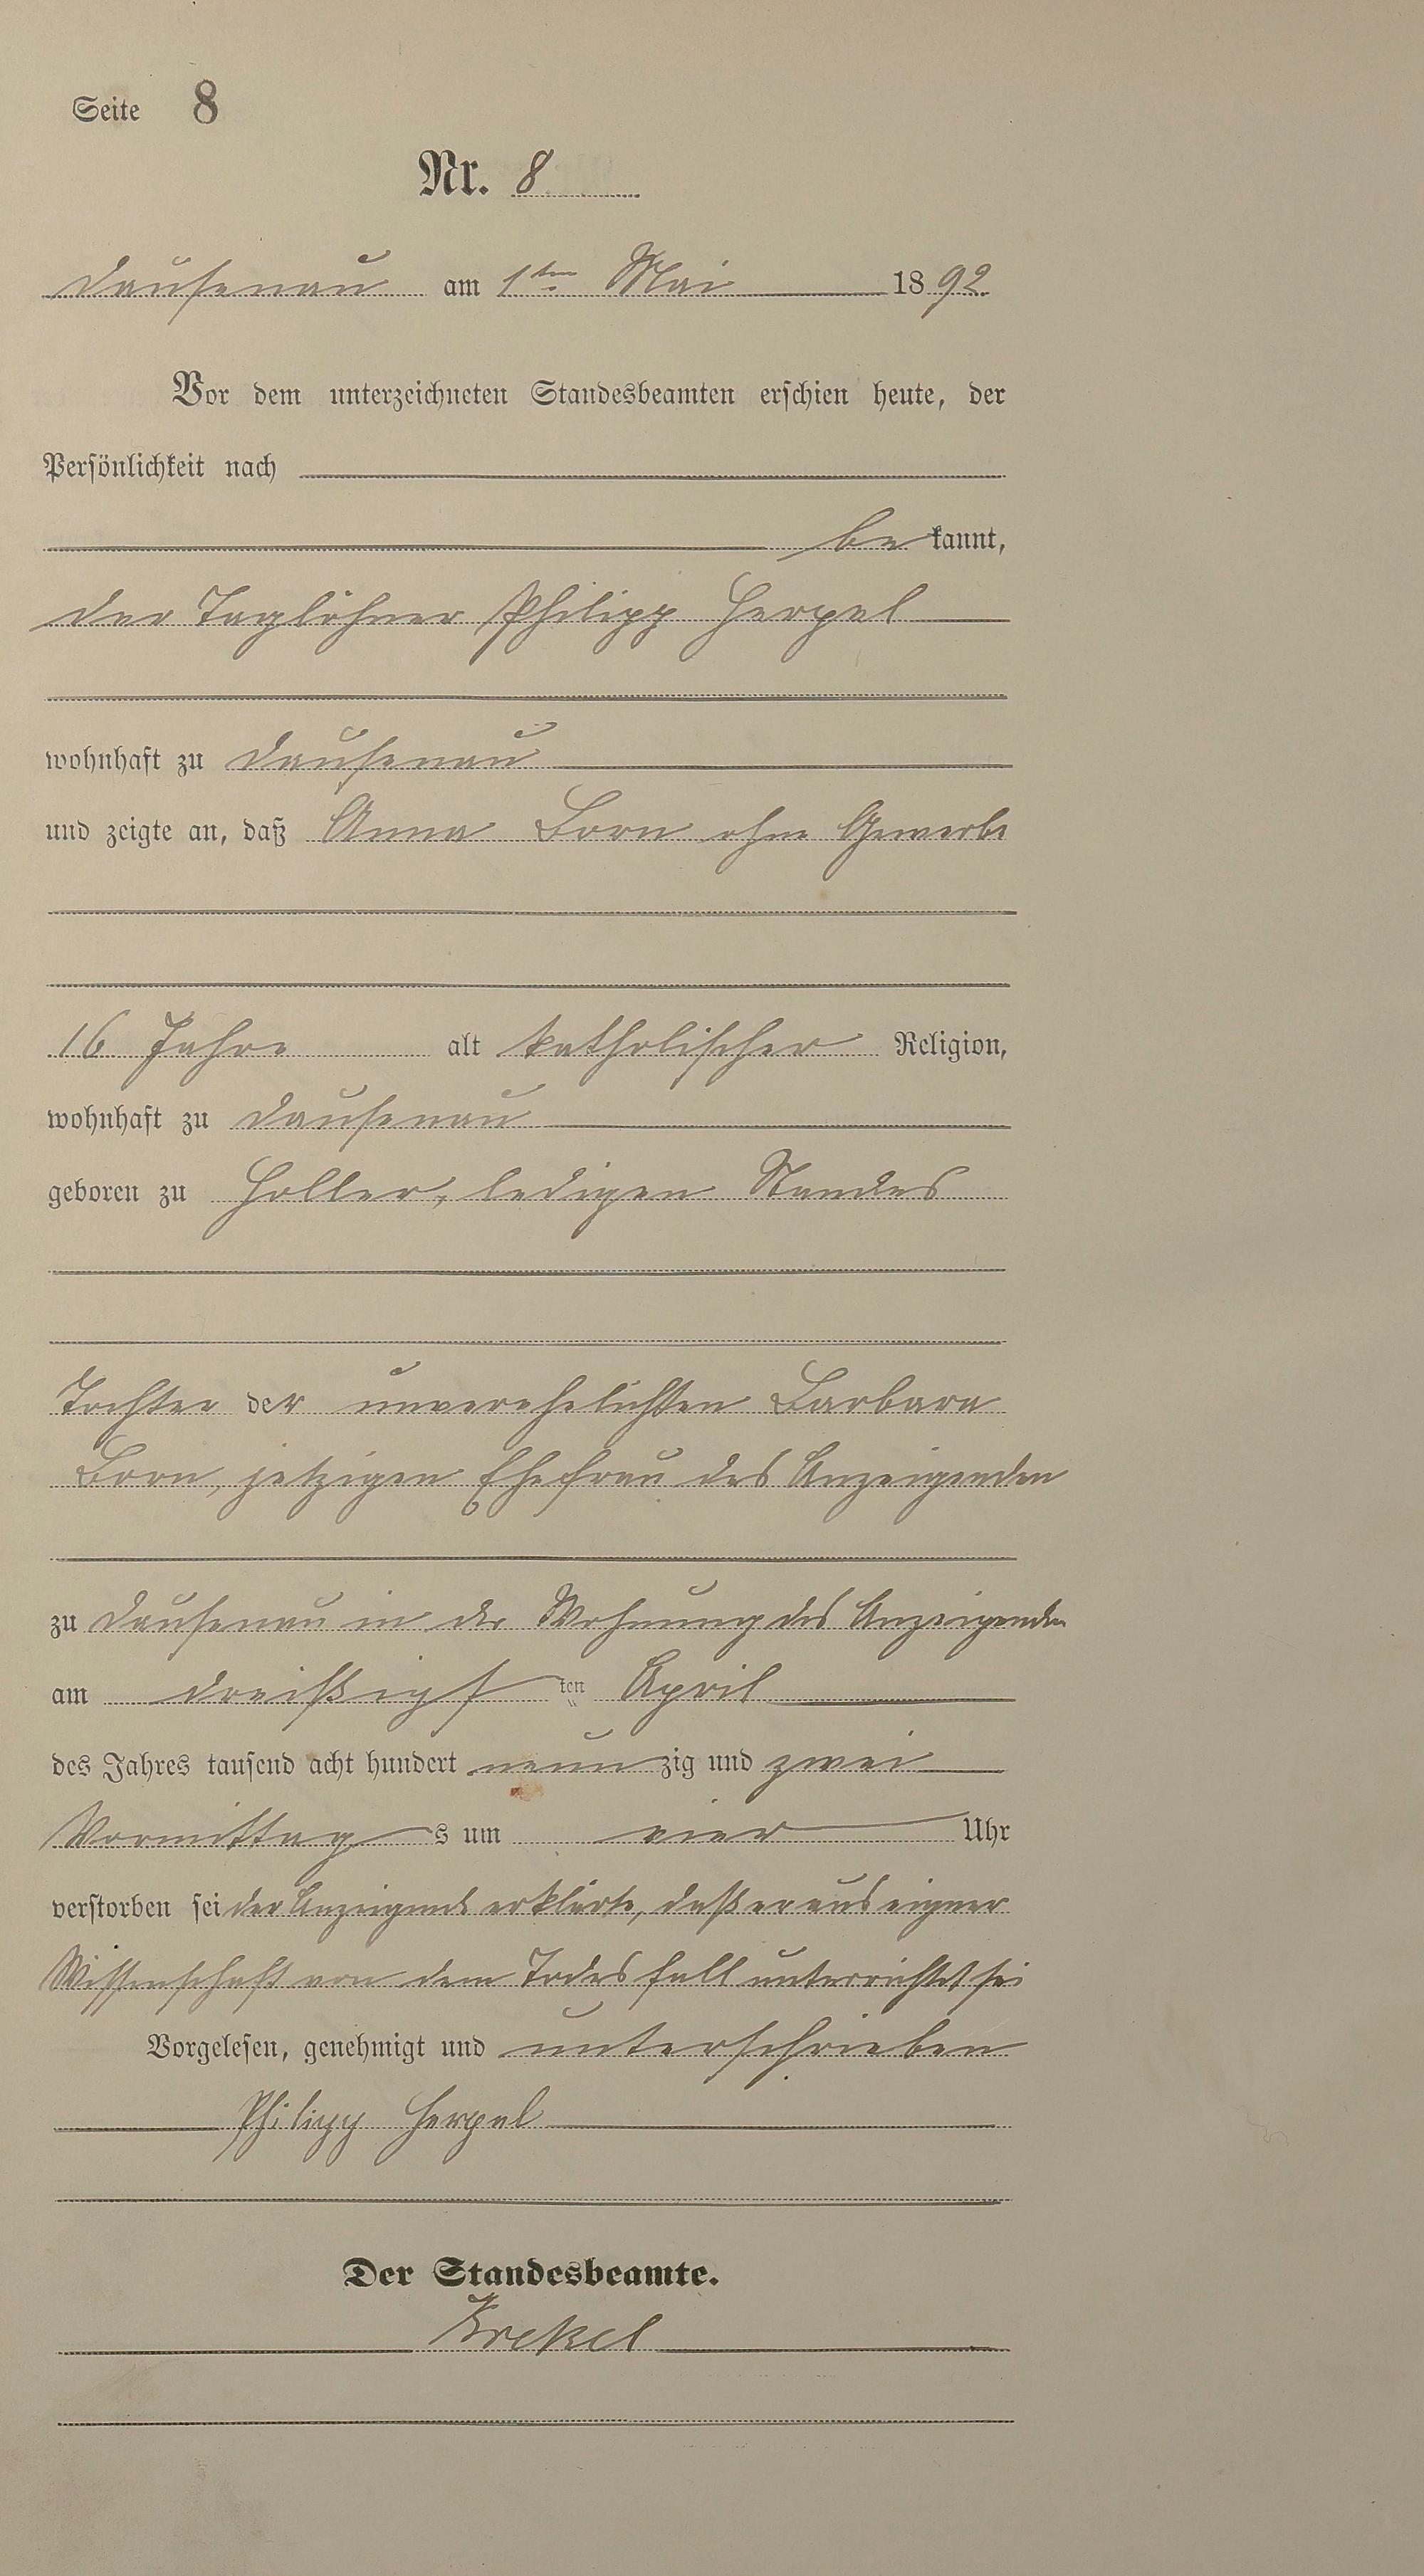 Seite 8
Nr. 8
Dausenau am 1ten Mai 1892
Vor dem unterzeichneten Standesbeamten erschien heute, der
Persönlichkeit nach
bekannt,
der Taglöhner Philipp Herpel
wohnhaft zu Dausenau
und zeigte an, daß Anna Born ohne Gewerbe
16 Jahre alt katholischer Religion,
wohnhaft zu Dausenau
geboren zu Holler, ledigen Standes
Tochter der unverehelichten Barbara
Born, jetzigen Ehefrau des Anzeigenden
zu Dausenau in der Wohnung des Anzeigenden
am dreißigsten April
des Jahres tausend acht hundert neunzig und zwei
Vormittags um vier Uhr
verstorben sei der Anzeigende erklärte, daß er aus eigner
Wissenschaft von dem Todesfall unterrichtet sei
Vorgelesen, genehmigt und unterschrieben
Philipp Herpel
Der Standesbeamte.
Krekel